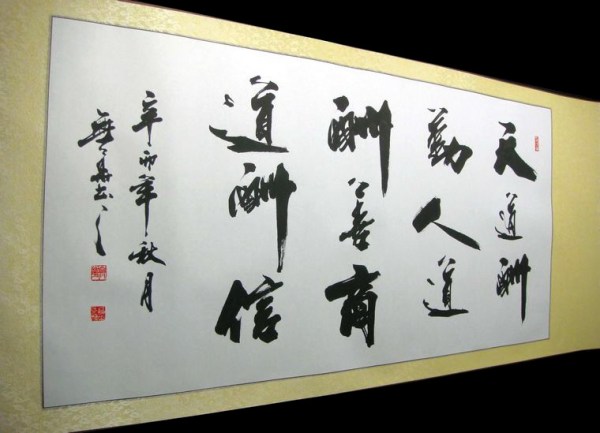 天道酬
勤人道
酬善商
道酬信
辛卯年秋月